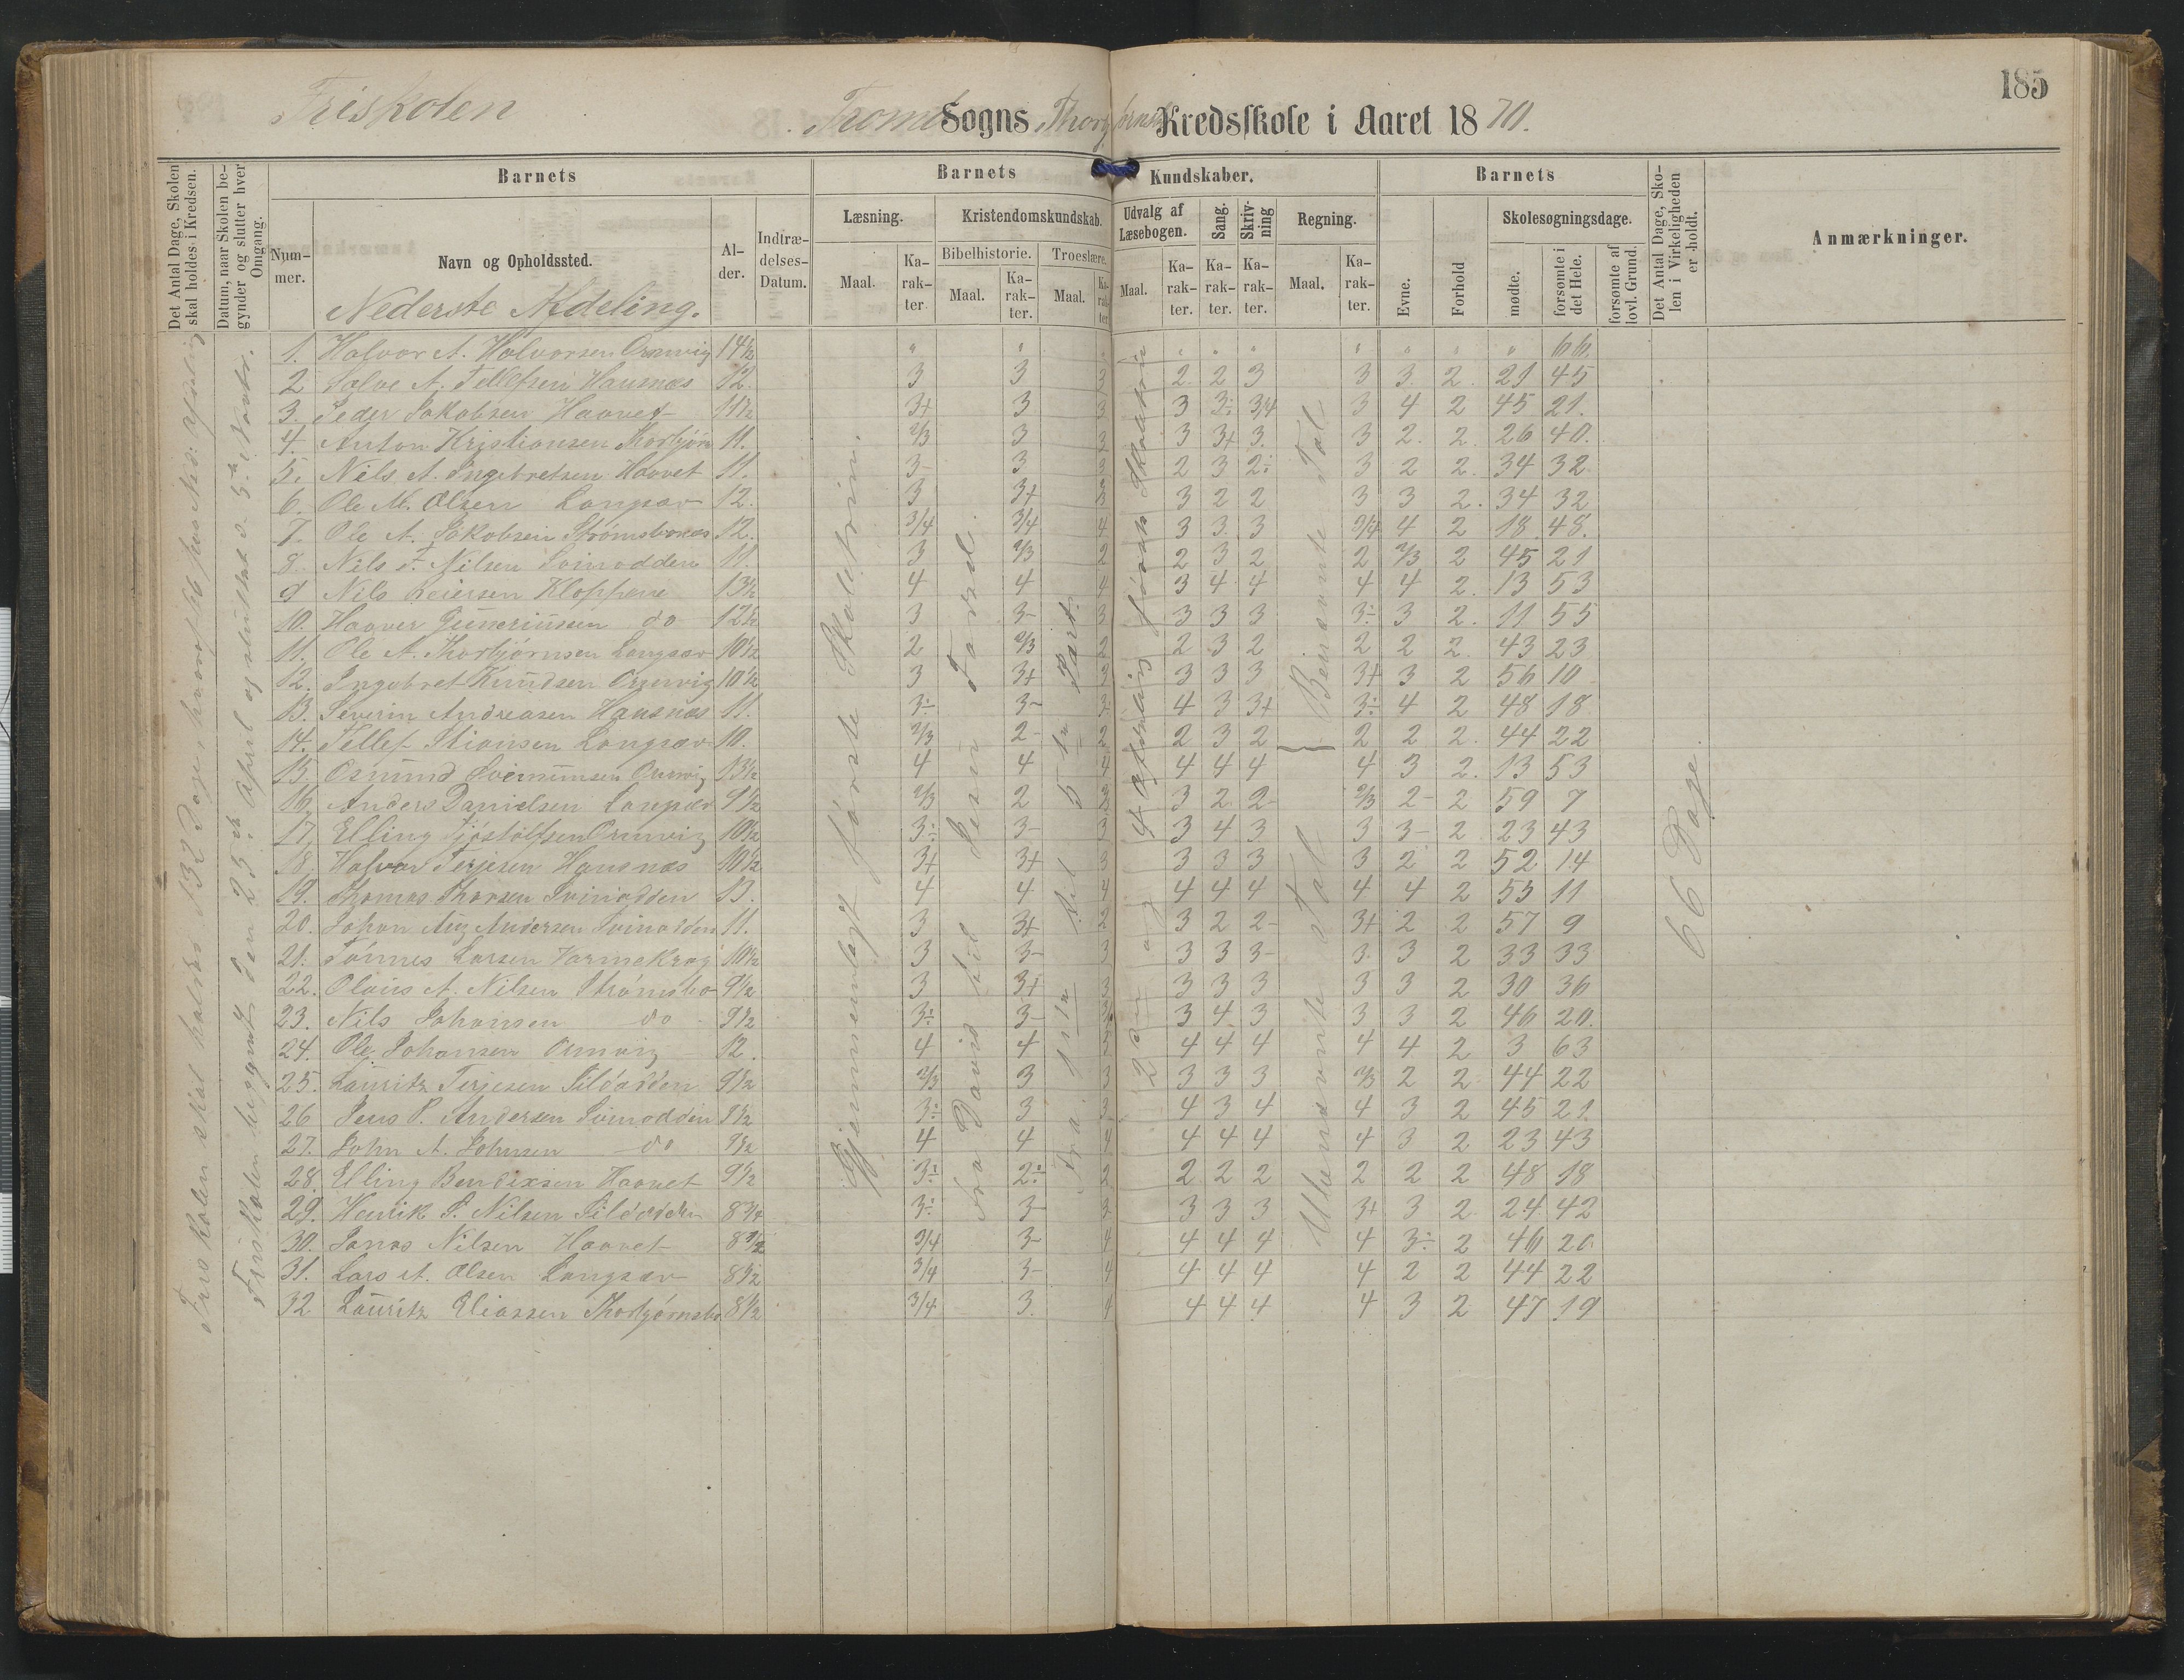 185
Friskolen
Tromø Sogns Thorbjørnsbo Kredsskole i Aaret 1870.
Det Antal Dage, Skolen skal holdes i Kredsen.
Datum, naar Skolen begynder og slutter hver Omgang.
Barnets
Nummer.
Navn og Opholdssted.
Alder.
Indtrædelses-Datum.
Barnets Kundskaber.
Læsning.
Maal.
Karakter.
Kristendomskundskab.
Bibelhistorie.
Maal.
Karakter.
Troeslære.
Maal.
Karakter
Udvalg af Læsebogen.
Maal.
Karakter.
Sang.
Karakter.
Skrivning
Karakter.
Regning.
Maal.
Karakter.
Barnets
Evne.
Forhold
Skolesøgningsdage.
mødte.
forsømte i det Hele.
forsømte af lovl. Grund.
Det Antal Dage, Skolen i Virkeligheden er holdt.
Anmærkninger.
Nederste Afdeling.
1. Halvor A. Halvorsen Ormvig 14½ " " " " " " " " " " 66.
2 Salve A. Tellefsen Hausnæs 12. 3 3 3 2. 2 3 3 3. 2. 21 45
3. Peder Jakobsen Haavet 11½ 3+ 3 3 3 3÷ 3/4 3 4 2 45 21.
4. Anton Kristiansen Thorbjørn 11. 2/3 3 3 3 3+ 3. 3 2. 2. 26 40.
5. Nils A. Ingebretsen Haavet 11. 3- 3 3 2 3 2÷ 3 2 2. 34 32.
6. Ole M. Olsen Langsæv 12. 3 3+ 3 3 2 2 3 3 2. 34 32
7. Ole A. Jakobsen Strømsbonæs 12. 3/4 3/4 4 3 3. 3 3/4 4 2 18. 48.
8. Nils T. Nilsen Soinodden 11. 3 2/3 2 2 3 2 2 2/3 2 45 21
9 Nils Reiersen Kloppene 13½ 4 4 4 3 4. 4 4 4 2. 13 53
10. Haaver Guneriussen do 12½ 3 3- 3 3 3 3 3÷ 3 2. 11 55
11. Ole A. Thorbjørnsen Langsæv 10½ 2 2/3 2 2 3 2 2 2 2. 43 23
12. Ingebret Knudsen Ormvig 10½ 3 3+ 3 3 3 3 3+ 3 2 56 10
13. Severin Andreasen Hausnæs 11. 3÷ 3- 3 4 3 3+ 3÷ 4 2 48 18
14. Tellef Stiansen Langsæv 10. 2/3 2- 2 2 3 2 2 2 2. 44 22
15. Osmund Soemunsen Ormvig 13½ 4 4 4 4 4 4 4 3 2. 13 53
16. Anders Danielsen Langsæv 9½ 2/3 2 2 3 2. 2- 2/3 2- 2 59 7
17. Elling Tjøstolfsen Ormvig 10½ 3÷ 3- 3 3 4 3 3 3- 2 23 43
18. Halvor Terjesen Hausnæs 10½ 3+ 3+ 3 3 3 3 3 2 2 52 14
19. Thomas Thorsen Soinodden 13. 4 4 4 4 4 4 4 4 2 55 11
20. Johan Aug Andersen Soinodden 11. 3 3+ 2 3 2 2- 3+ 2 2 57 9
21. Tønnes Larsen Varmekrog 10½ 3 3- 3 3 3 3- 3. 3 2 33 33
22. Olaus A. Nilsen Strømsbo 9½ 3 3+ 3 3 3 3 3 3 2 30 36
23. Nils Johansen do 9½ 3÷ 3- 3 3 4 3 3 3 2 46 20.
24. Ole Johansen Ormvig 12. 4 4 5 4 4 4 4 4 2 3 63
25. Lauritz Terjesen Sildodden 9½ 2/3 3 3 3 3 3 2/3 2 2 44 22
26 Jens P. Andersen Soinodden 9½ 3÷ 3 3 4 3 4 4 3 2 45 21.
27. John A. Johnsen do 9½ 4 4 4 4 4 4 4 3 2. 23 43
28. Elling Bendixsen Haavet 9½ 3÷ 2÷ 2 2. 2 2 2 2 2 48 18
29. Henrik S. Nilsen Sildodden 8¾ 3÷ 3- 3 3 3 3 3+ 3 2 24 42
30. Jonas Nilsen Haavet 8½ 3/4 3- 4 4 4 4 4 3÷ 2 46 20
31. Lars A. Olsen Langsæv 8½ 3/4 3- 4 4 4 4 4 2 2 44 22
32 Lauritz Eliassen Thorbjørnsbo 8½ 3/4 3. 4 4 4 4 4 3 2 47 19
Friskolen begyndte den 25de April og sluttet d. 5te Novbr.
Gjennemlagt første Skoletrin.
Fra David til Jesu Fødsel.
Fra 1ste til 5te Part.
2den og 4 Afdeling første Skoletrin
Ubenævnte Tal
Benævnte Tal.
66 Dage.